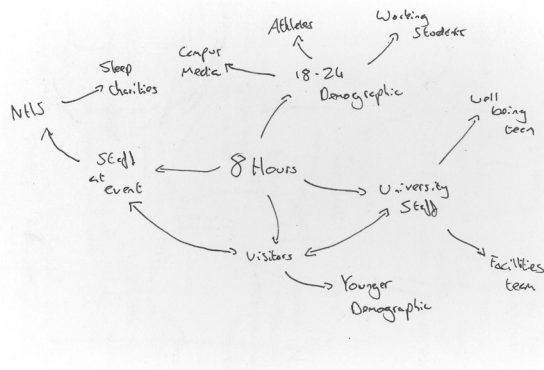 Athletes
Working
Students
Campus
Media
18-24
Demographic
Sleep
Charities
NHS
Well
being
team
Staff
at
event
8 Hours
University
Staff
Visitors
Facilities
team
Younger
Demographic